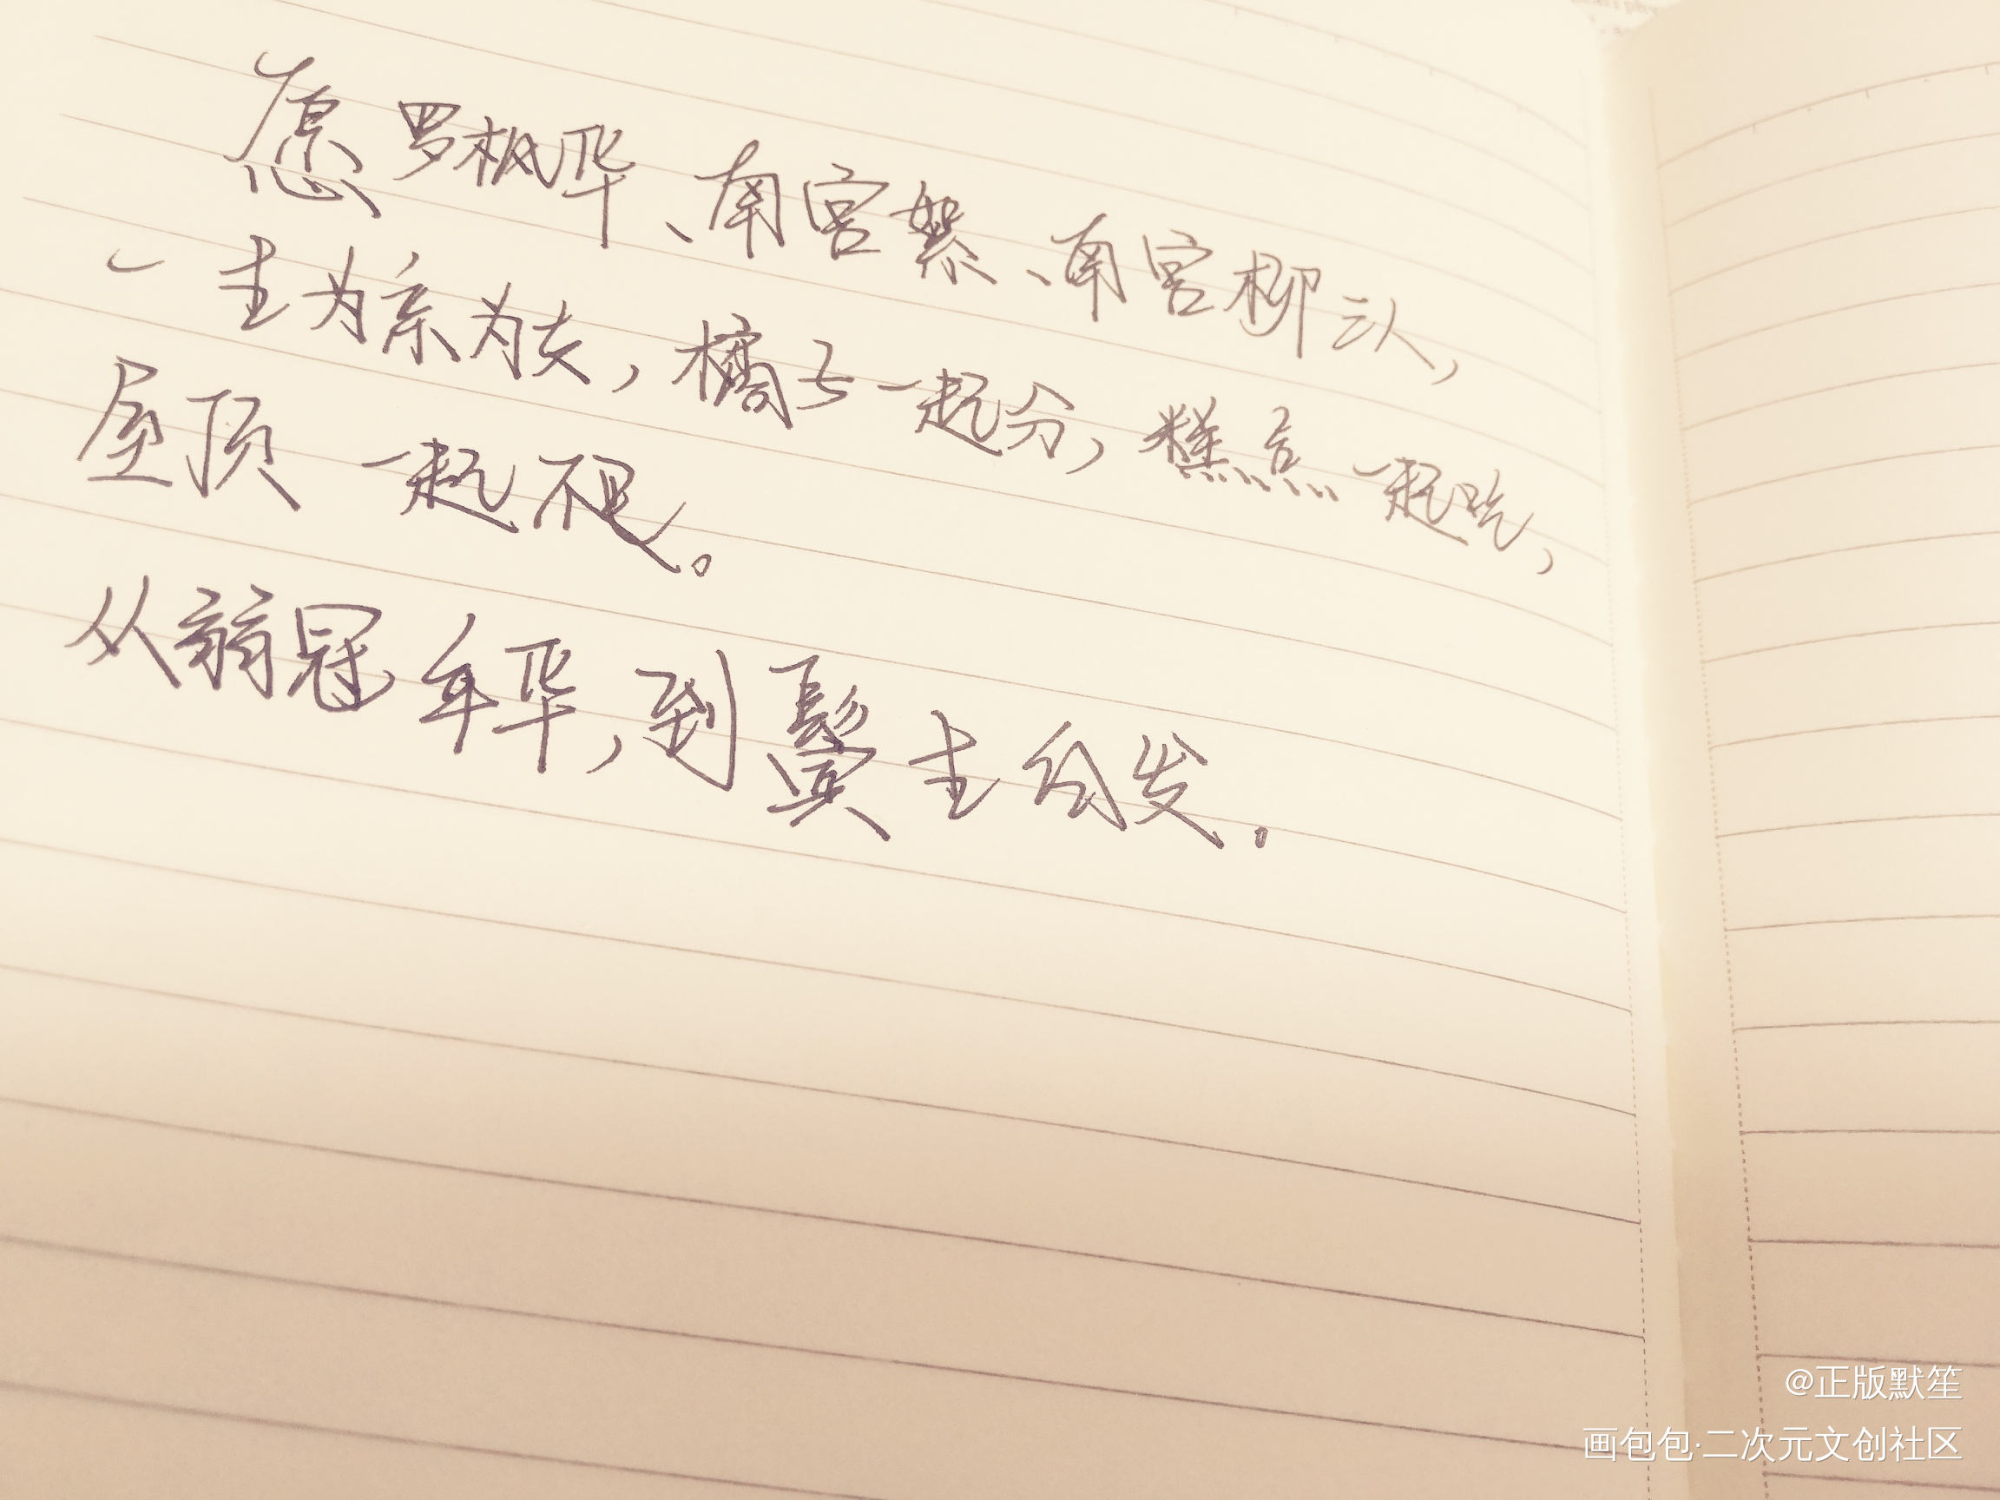 愿罗枫华、南宫絮、南宫柳三人,
一生为亲为友,橘子一起分,糕点一起吃,
屋顶一起爬。
从弱冠年华,到鬓生白发.
@正版默笙
画包包·二次元文创社区